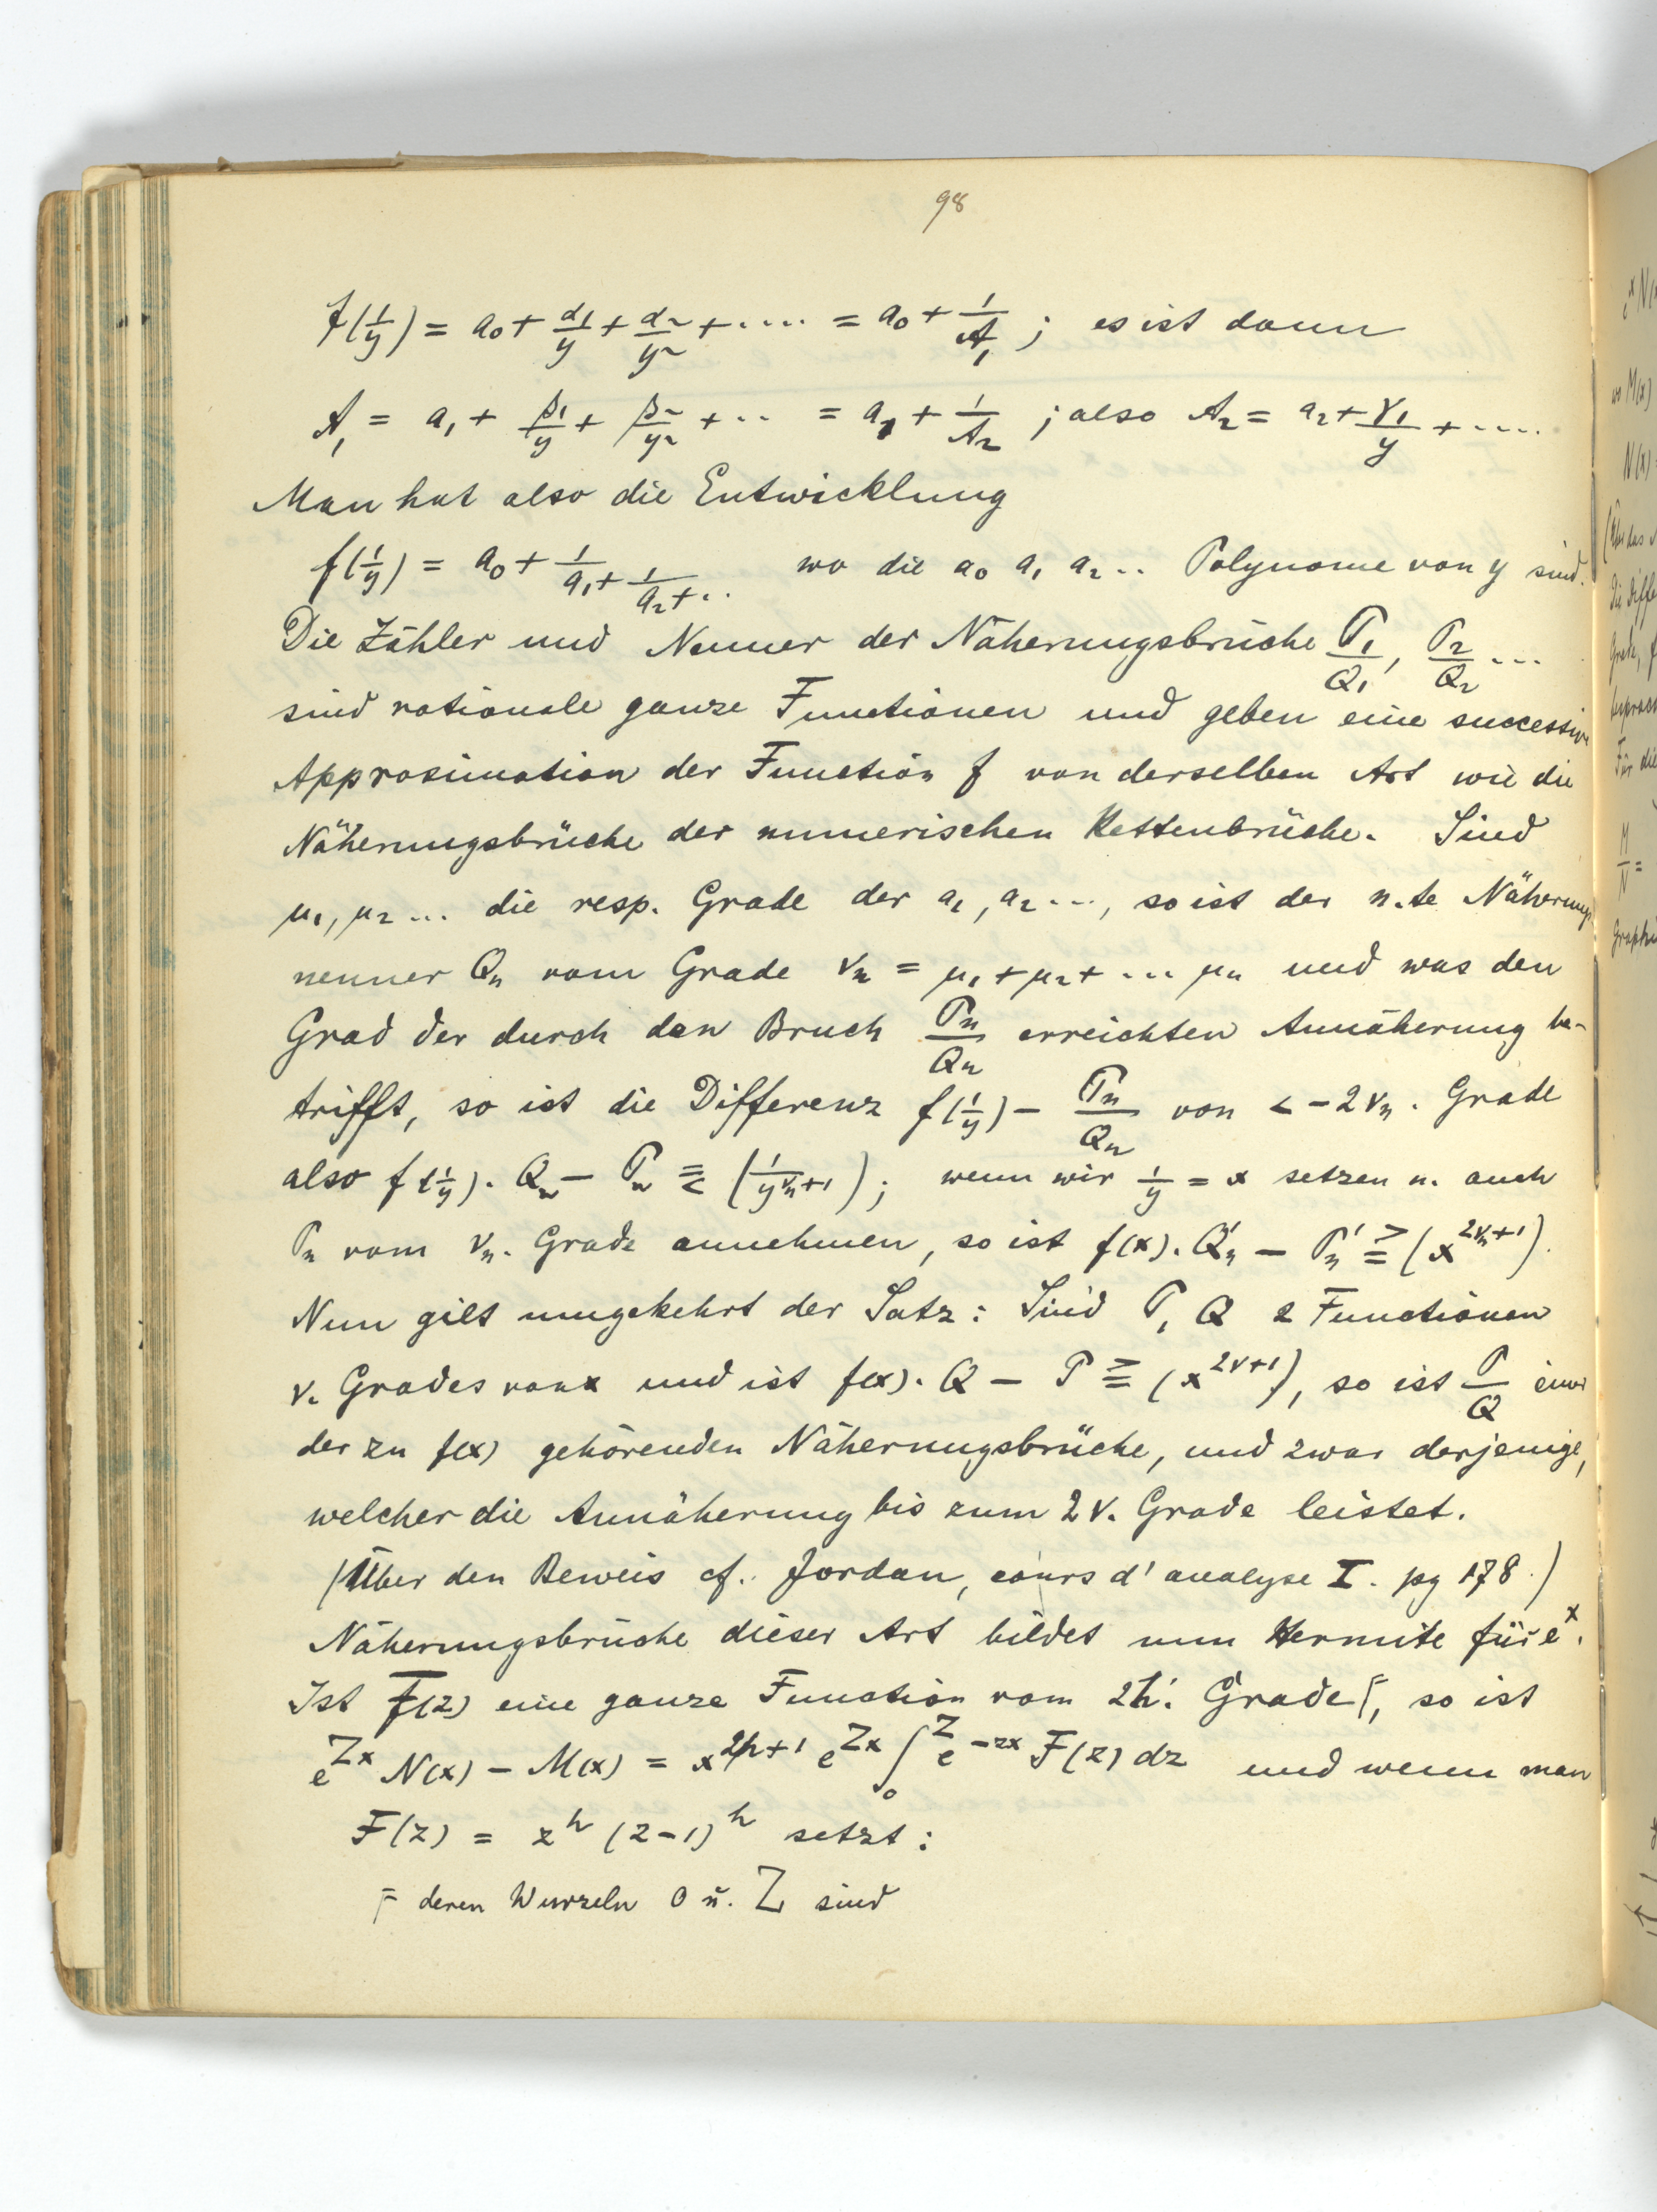 98
f(1/y) = a₀ + α₁/y + α₂/y² + .... = a₀ + 1/A₁ ; es ist dann
A₁ = a₁ + β₁/y + β₂/y² + .. = a₁ + 1/A₂ ; also A₂ = a₂ + γ₁/y + ....
Man hat also die Entwicklung
f(1/y) = a₀ + 1/(a₁ + 1/(a₂ + .. wo die a₀ a₁ a₂ .. Polynome von y sind.
Die Zähler und Nenner der Näherungsbrüche P₁/Q₁, P₂/Q₂ ...
sind rationale ganze Functionen und geben eine successive
Approximation der Function f von derselben Art wie die
Näherungsbrüche der numerischen Kettenbrüche. Sind
μ₁, μ₂ ... die resp. Grade der a₁, a₂ ..., so ist der n.te Näherungs
nenner Qₙ vom Grade νₙ = μ₁ + μ₂ + ... μₙ und was den
Grad der durch den Bruch Pₙ/Qₙ erreichten Annäherung be-
trifft, so ist die Differenz f(1/y) - Pₙ/Qₙ von < -2νₙ. Grade
also f(1/y). Qₙ - Pₙ ≦ (1/y^(νₙ+1)); wenn wir 1/y = x setzen u. auch
Pₙ vom νₙ. Grade annehmen, so ist f(x). Q'ₙ - P'ₙ ≧ (x^(2νₙ+1)).
Nun gilt umgekehrt der Satz: Sind P, Q 2 Functionen
ν. Grades von x und ist f(x). Q - P ≧ (x^(2ν+1)), so ist P/Q einer
der zu f(x) gehörenden Näherungsbrüche, und zwar derjenige,
welcher die Annäherung bis zum 2ν. Grade leistet.
(Über den Beweis cf. Jordan, cours d'analyse I. pg 178.)
Näherungsbrüche dieser Art bildet nun Hermite für eˣ.
Ist F(z) eine ganze Function vom 2h. Grade⌈, so ist
e^(Zx) N(x) - M(x) = x^(2h+1) e^(Zx) ∫₀^Z e^(-zx) F(z) dz und wenn man
F(z) = z^h (z-1)^h setzt:
⌈ deren Wurzeln 0 u. Z sind